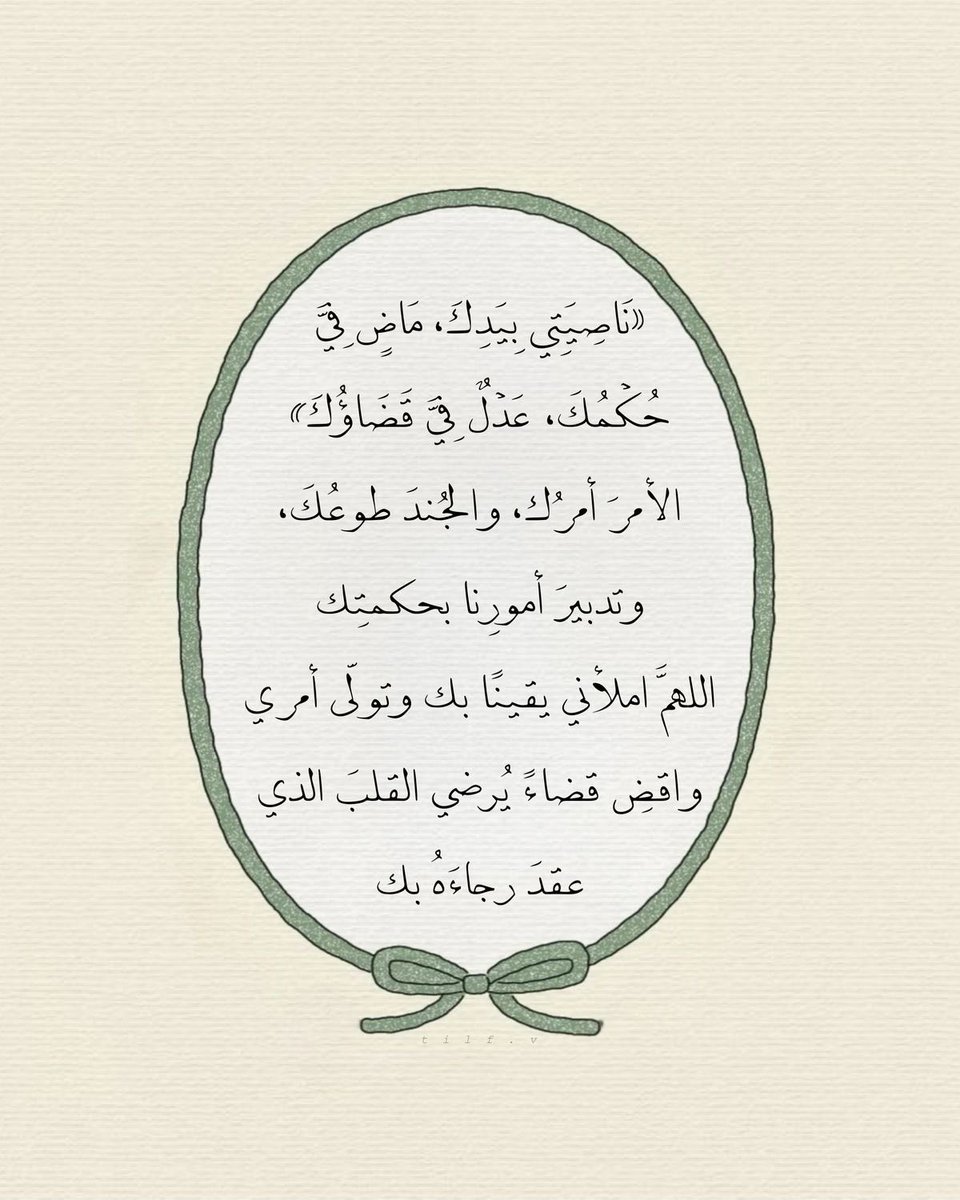 «نَاصِيَتِي بِيَدِكَ، مَاضٍ فِيَّ
حُكْمُكَ، عَدْلٌ فِيَّ قَضَاؤُكَ»
الأمرَ أمرُك، والجُندَ طوعُكَ،
وتدبيرَ أمورِنا بحكمتِك
اللهمَّ املأني يقينًا بك وتولّى أمري
واقضِ قضاءً يُرضي القلبَ الذي
عقدَ رجاءَهُ بك
t i l f . v